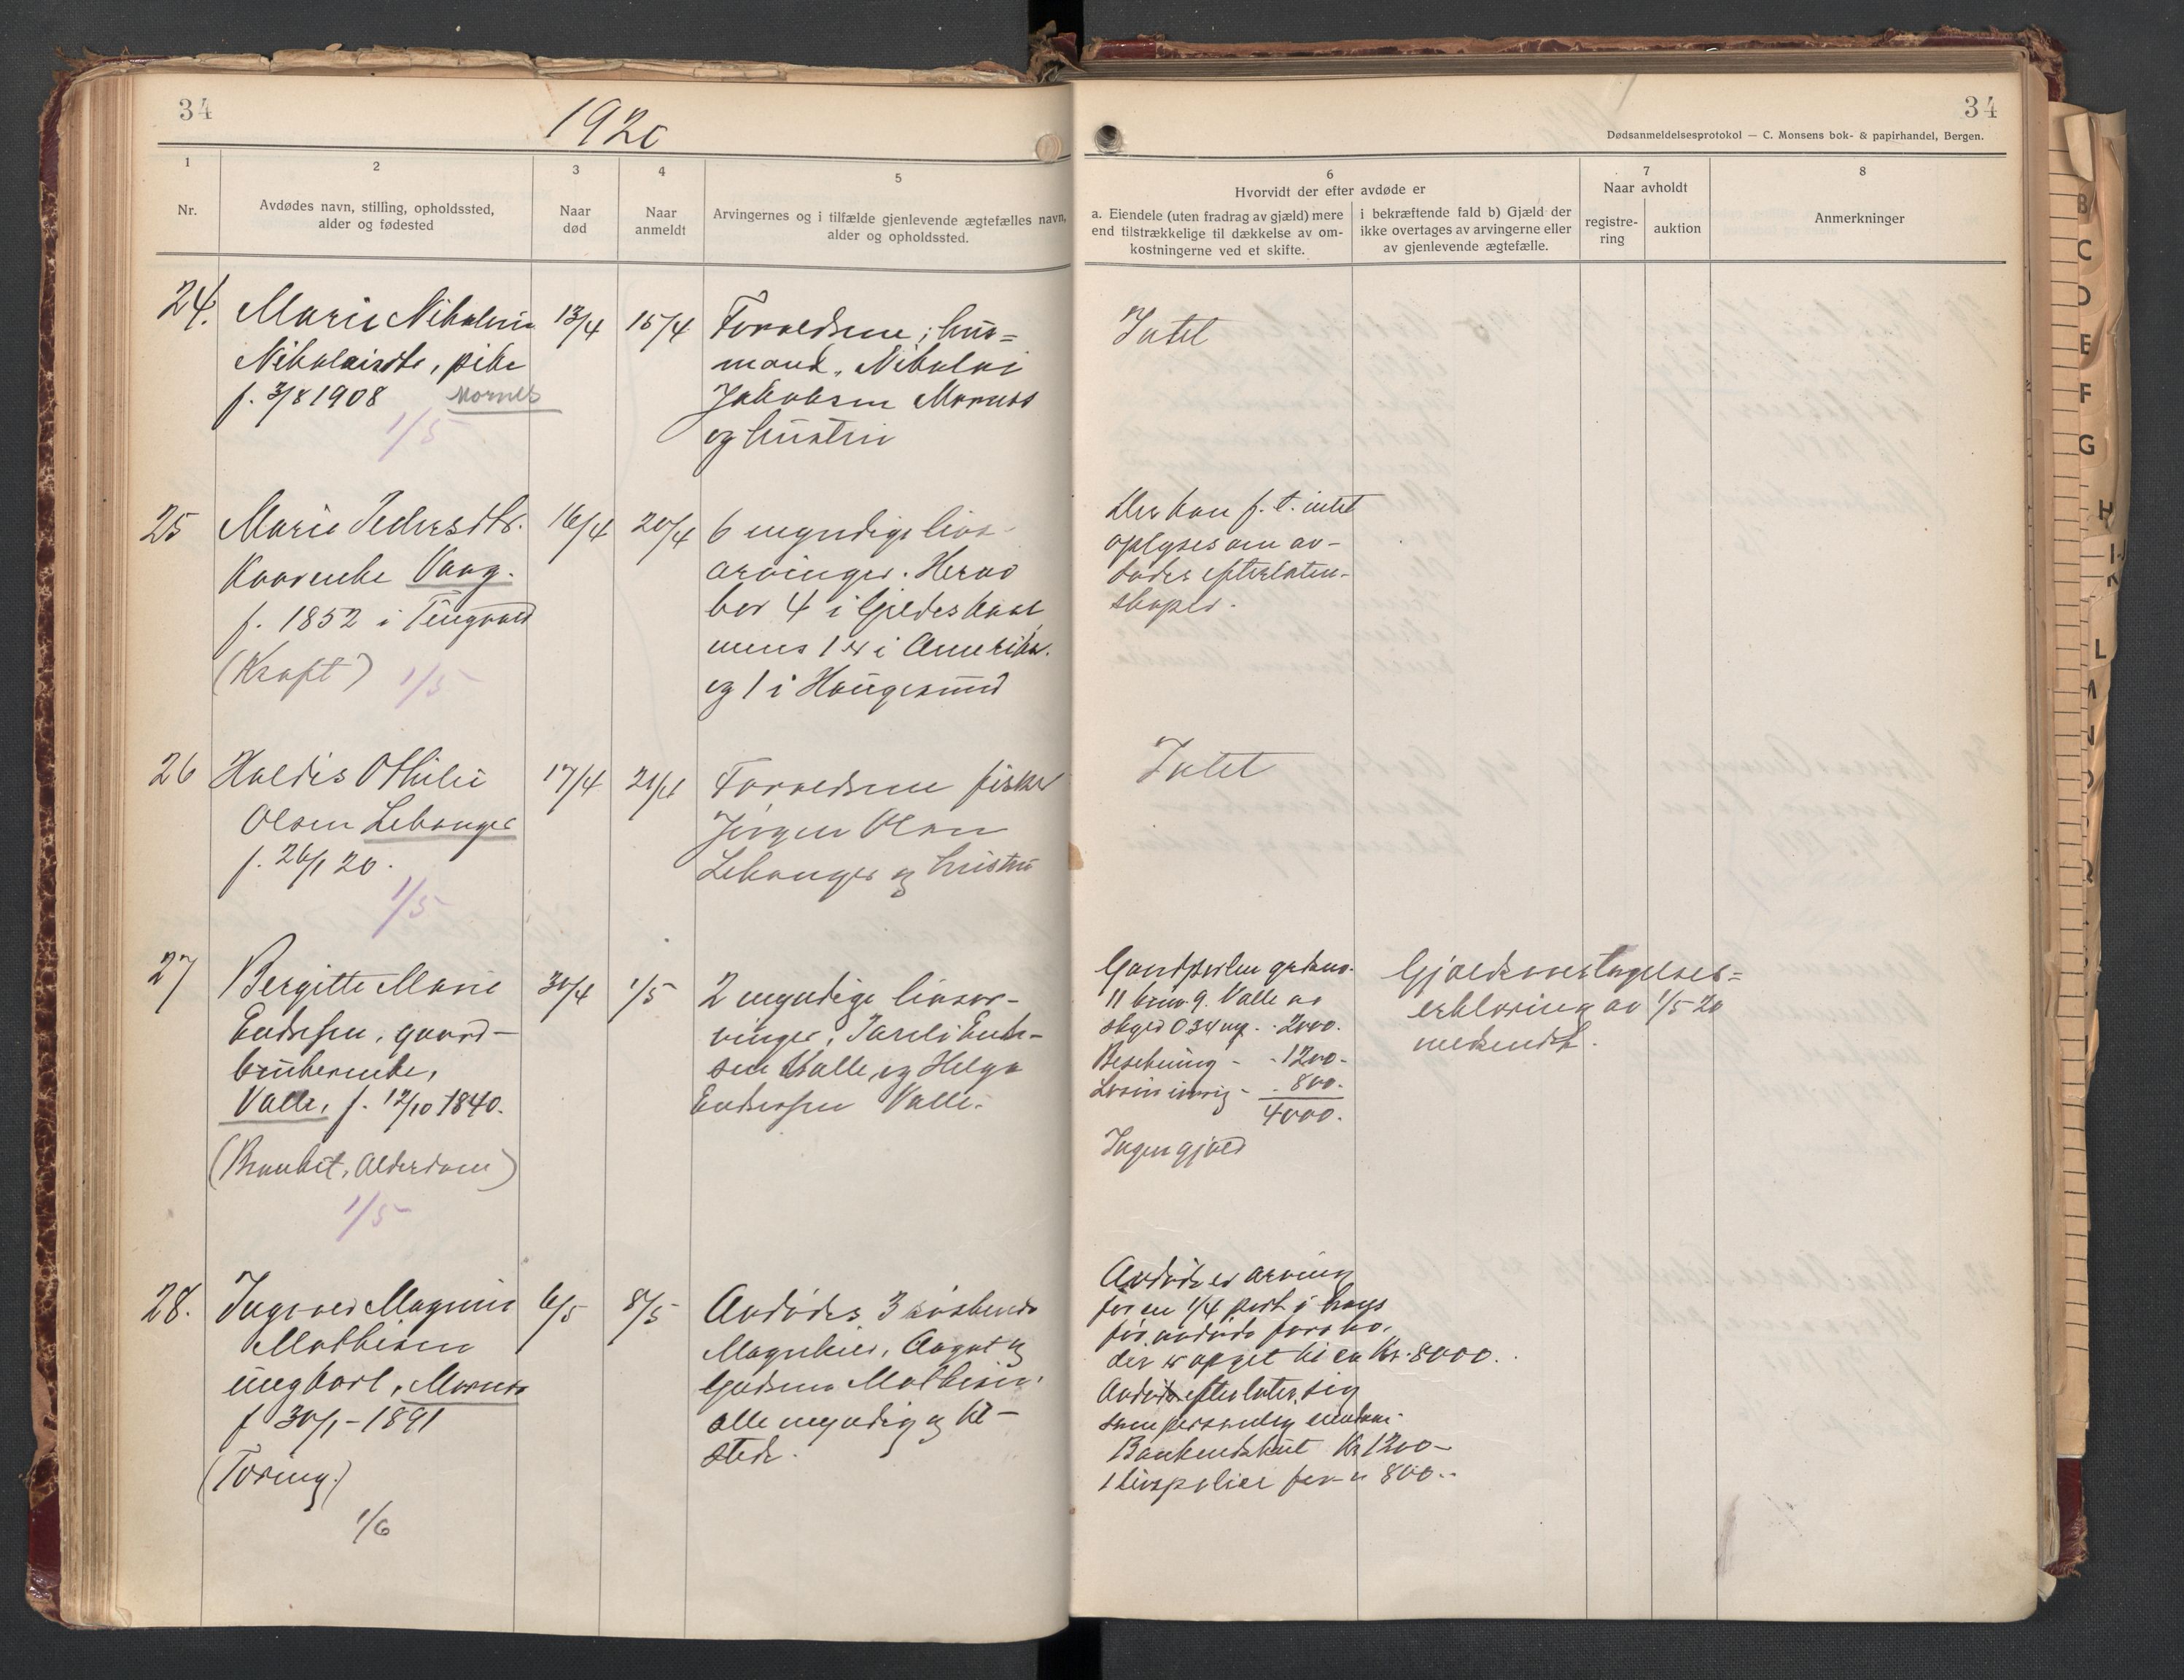 34
1920
34
Dødsanmeldelsesprotokol — C. Monsens bok- & papirhandel, Bergen.
1
Nr.
2
Avdødes navn, stilling, opholdssted,
alder og fødested
3
Naar
død
4
Naar
anmeldt
5
Arvingernes og i tilfælde gjenlevende ægtefælles navn,
alder og opholdssted.
6
Hvorvidt der efter avdøde er
a. Eiendele (uten fradrag av gjæld) mere
end tilstrækkelige til dækkelse av om-
kostningerne ved et skifte.
i bekræftende fald b) Gjæld der
ikke overtages av arvingerne eller
av gjenlevende ægtefælle.
7
Naar avholdt
registre-
ring
auktion
8
Anmerkninger
24.
Marie Nikoline
Nikolaisdtr, pike
f. 3/8 1908 Mornes
1/5
13/4
15/4
Forældrene, hus=
mand, Nikolai
Jakobsen Mornes
og hustru
Intet
25
Marie Pedersdtr.
Kaarenke Vaag.
f. 1852 i Tingvold
(Kræft)
1/5
16/4
20/4
6 myndige livs-
arvinger. Herav
bor 4 i Gildeskaal
mens 1 er i Amerika.
og 1 i Haugesund
Der kan f. t. intet
oplyses om av-
dødes efterlaten-
skaper.
26
Haldis Othilie
Olsen Lekanger
f. 26/1 20.
1/5
17/4
21/4
Forældrene fisker
Jörgen Olsen
Lekanger og hustru
Intet
27
Bergitte Marie
Endresen, gaard-
brukerenke,
Valle, f. 12/10 1840.
(Bronkit, Alderdom)
1/5
30/4
1/5
2 myndige livsar-
vinger,
Valle og Helga
Valle.
11 brno 9. Valle av
skyld 0 34 2000.
Besetning - - 1200-
Løsøre iøvrig - - 800.
4000.
Ingen gjæld
Gjældsovertagelses=
erklæring av 1/5 20
medsendt.
28.
Ingvar Magnus
Mathisen
ungkarl, Mornes
f 30/1 - 1891
(Tæring.)
1/6
6/5
8/5
Avdödes 3 söskende
August og
Mathisen,
alle myndig og til-
stede.
Avdöde er arving
for en 1/4 part i
for avdöde fars bo,
der er opgit til ca Kr. 8000.
Avdöde efterlater sig
som personlig eiendom.
Bankindskut Kr 1200-
1 livspolice for " 800.-